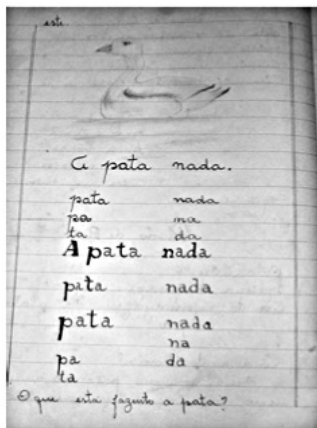 A pata nada.
pata nada
pa na
ta da
A pata nada
pata nada
pata nada
na
pa da
ta
O que está fazento a pata?